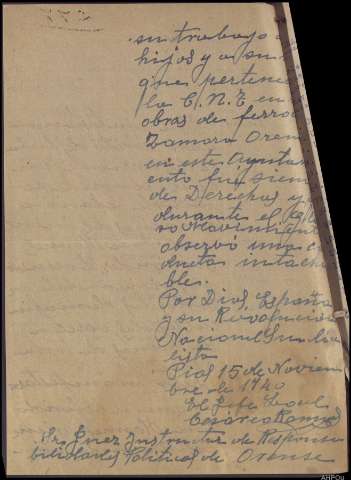 su trabajo
hijos y a su
que pertenec
la C.N.T. en
obras de ferroc
Zamora Oren
en este Ayunta
ento fue siem
de Derechas y
durante el
so Movimient
observó una c
ducta intacha
bles.
Por Dios, España
y su Revolución
Nacional Sindica
lista
Pias 15 de Noviem
bre de 1940
El Jefe Local
Cesareo Ramos
Sr. Juez Instructor de Responsa
bilidades Politicas de Orense
AHPOu